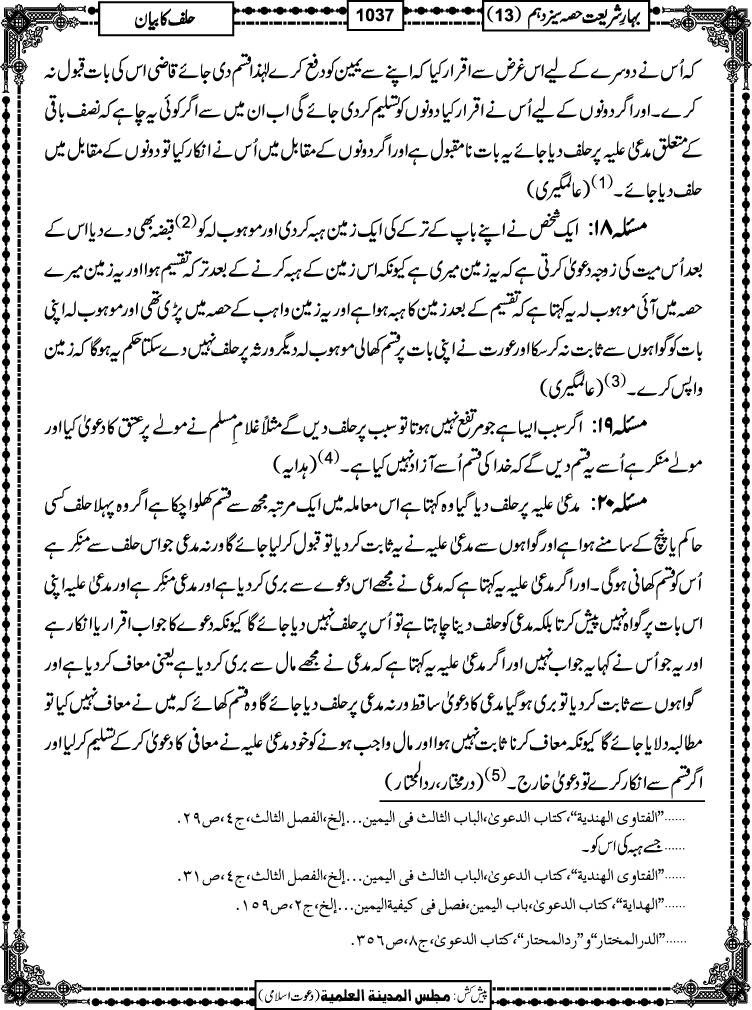 بہارِ شریعت حصہ سیزدہم (13)
1037
حلف کا بیان
کہ اُس نے دوسرے کے لیے اس غرض سے اقرار کیا کہ اپنے سے یمین کو دفع کرے لہٰذا قسم دی جائے قاضی اس کی بات قبول نہ
کرے۔ اور اگر دونوں کے لیے اُس نے اقرار کیا دونوں کو تسلیم کردی جائے گی اب ان میں سے اگر کوئی یہ چاہے کہ نصف باقی
کے متعلق مدعیٰ علیہ پر حلف دیا جائے یہ بات نامقبول ہے اور اگر دونوں کے مقابل میں اُس نے انکار کیا تو دونوں کے مقابل میں
حلف دیا جائے۔(1) (عالمگیری)
مسئلہ ۱۸: ایک شخص نے اپنے باپ کے ترکے کی ایک زمین ہبہ کردی اور موہوب لہ کو(2) قبضہ بھی دے دیا اس کے
بعد اُس میت کی زوجہ دعویٰ کرتی ہے کہ یہ زمین میری ہے کیونکہ اس زمین کے ہبہ کرنے کے بعد ترکہ تقسیم ہوا اور یہ زمین میرے
حصہ میں آئی موہوب لہ یہ کہتا ہے کہ تقسیم کے بعد زمین کا ہبہ ہوا ہے اور یہ زمین واہب کے حصہ میں پڑی تھی اور موہوب لہ اپنی
بات کو گواہوں سے ثابت نہ کرسکا اور عورت نے اپنی بات پر قسم کھالی موہوب لہ دیگر ورثہ پر حلف نہیں دے سکتا حکم یہ ہوگا کہ زمین
واپس کرے۔(3) (عالمگیری)
مسئلہ ۱۹: اگر سبب ایسا ہے جو مرتفع نہیں ہوتا تو سبب پر حلف دیں گے مثلاً غلامِ مسلم نے مولے پر عتق کا دعویٰ کیا اور
مولے منکر ہے اُسے یہ قسم دیں گے کہ خدا کی قسم اُسے آزاد نہیں کیا ہے۔(4) (ہدایہ)
مسئلہ ۲۰: مدعیٰ علیہ پر حلف دیا گیا وہ کہتا ہے اس معاملہ میں ایک مرتبہ مجھ سے قسم کھلوا چکا ہے اگر وہ پہلا حلف کسی
حاکم یا پنچ کے سامنے ہوا ہے اور گواہوں سے مدعیٰ علیہ نے یہ ثابت کردیا تو قبول کرلیا جائے گا ورنہ مدعی جو اس حلف سے منکر ہے
اُس کو قسم کھانی ہوگی۔ اور اگر مدعیٰ علیہ یہ کہتا ہے کہ مدعی نے مجھے اس دعوے سے بری کردیا ہے اور مدعی منکر ہے اور مدعیٰ علیہ اپنی
اس بات پر گواہ نہیں پیش کرتا بلکہ مدعی کو حلف دینا چاہتا ہے تو اُس پر حلف نہیں دیا جائے گا کیونکہ دعوے کا جواب اقرار یا انکار ہے
اور یہ جو اُس نے کہا یہ جواب نہیں اور اگر مدعیٰ علیہ یہ کہتا ہے کہ مدعی نے مجھے مال سے بری کردیا ہے یعنی معاف کردیا ہے اور
گواہوں سے ثابت کردیا تو بری ہوگیا مدعی کا دعویٰ ساقط ورنہ مدعی پر حلف دیا جائے گا وہ قسم کھائے کہ میں نے معاف نہیں کیا تو
مطالبہ دلایا جائے گا کیونکہ معاف کرنا ثابت نہیں ہوا اور مال واجب ہونے کو خود مدعیٰ علیہ نے معافی کا دعویٰ کرکے تسلیم کرلیا اور
اگر قسم سے انکار کرے تو دعویٰ خارج۔(5) (درمختار، ردالمحتار)
......”الفتاوی الھندیۃ“، کتاب الدعویٰ، الباب الثالث فی الیمین...إلخ، الفصل الثالث، ج٤، ص٢٩.
...... جسے ہبہ کی اس کو۔
......”الفتاوی الھندیۃ“، کتاب الدعویٰ، الباب الثالث فی الیمین...إلخ، الفصل الثالث، ج٤، ص٣١.
......”الھدایۃ“، کتاب الدعویٰ، باب الیمین، فصل فی کیفیۃ الیمین...إلخ، ج٢، ص١٥٩.
......”الدرالمختار“ و”ردالمحتار“، کتاب الدعویٰ، ج٨، ص٣٥٦.
پیش کش: مجلس المدینۃ العلمیۃ (دعوت اسلامی)